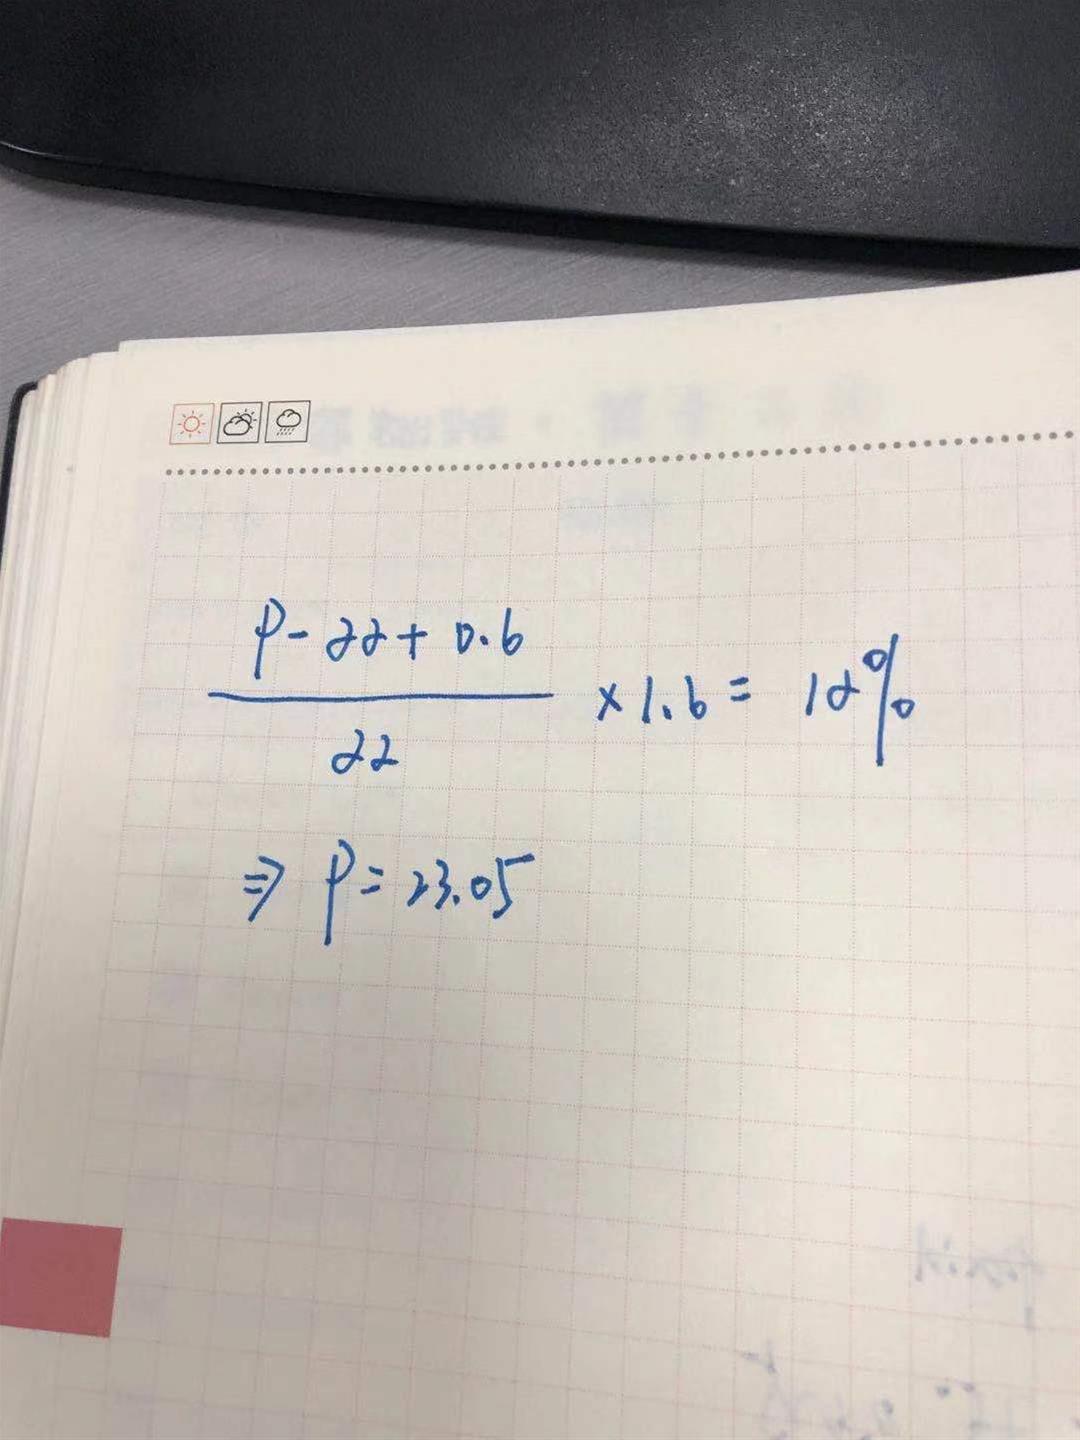 P-22+0.6
22
×1.6= 12%
⇒ P=23.05